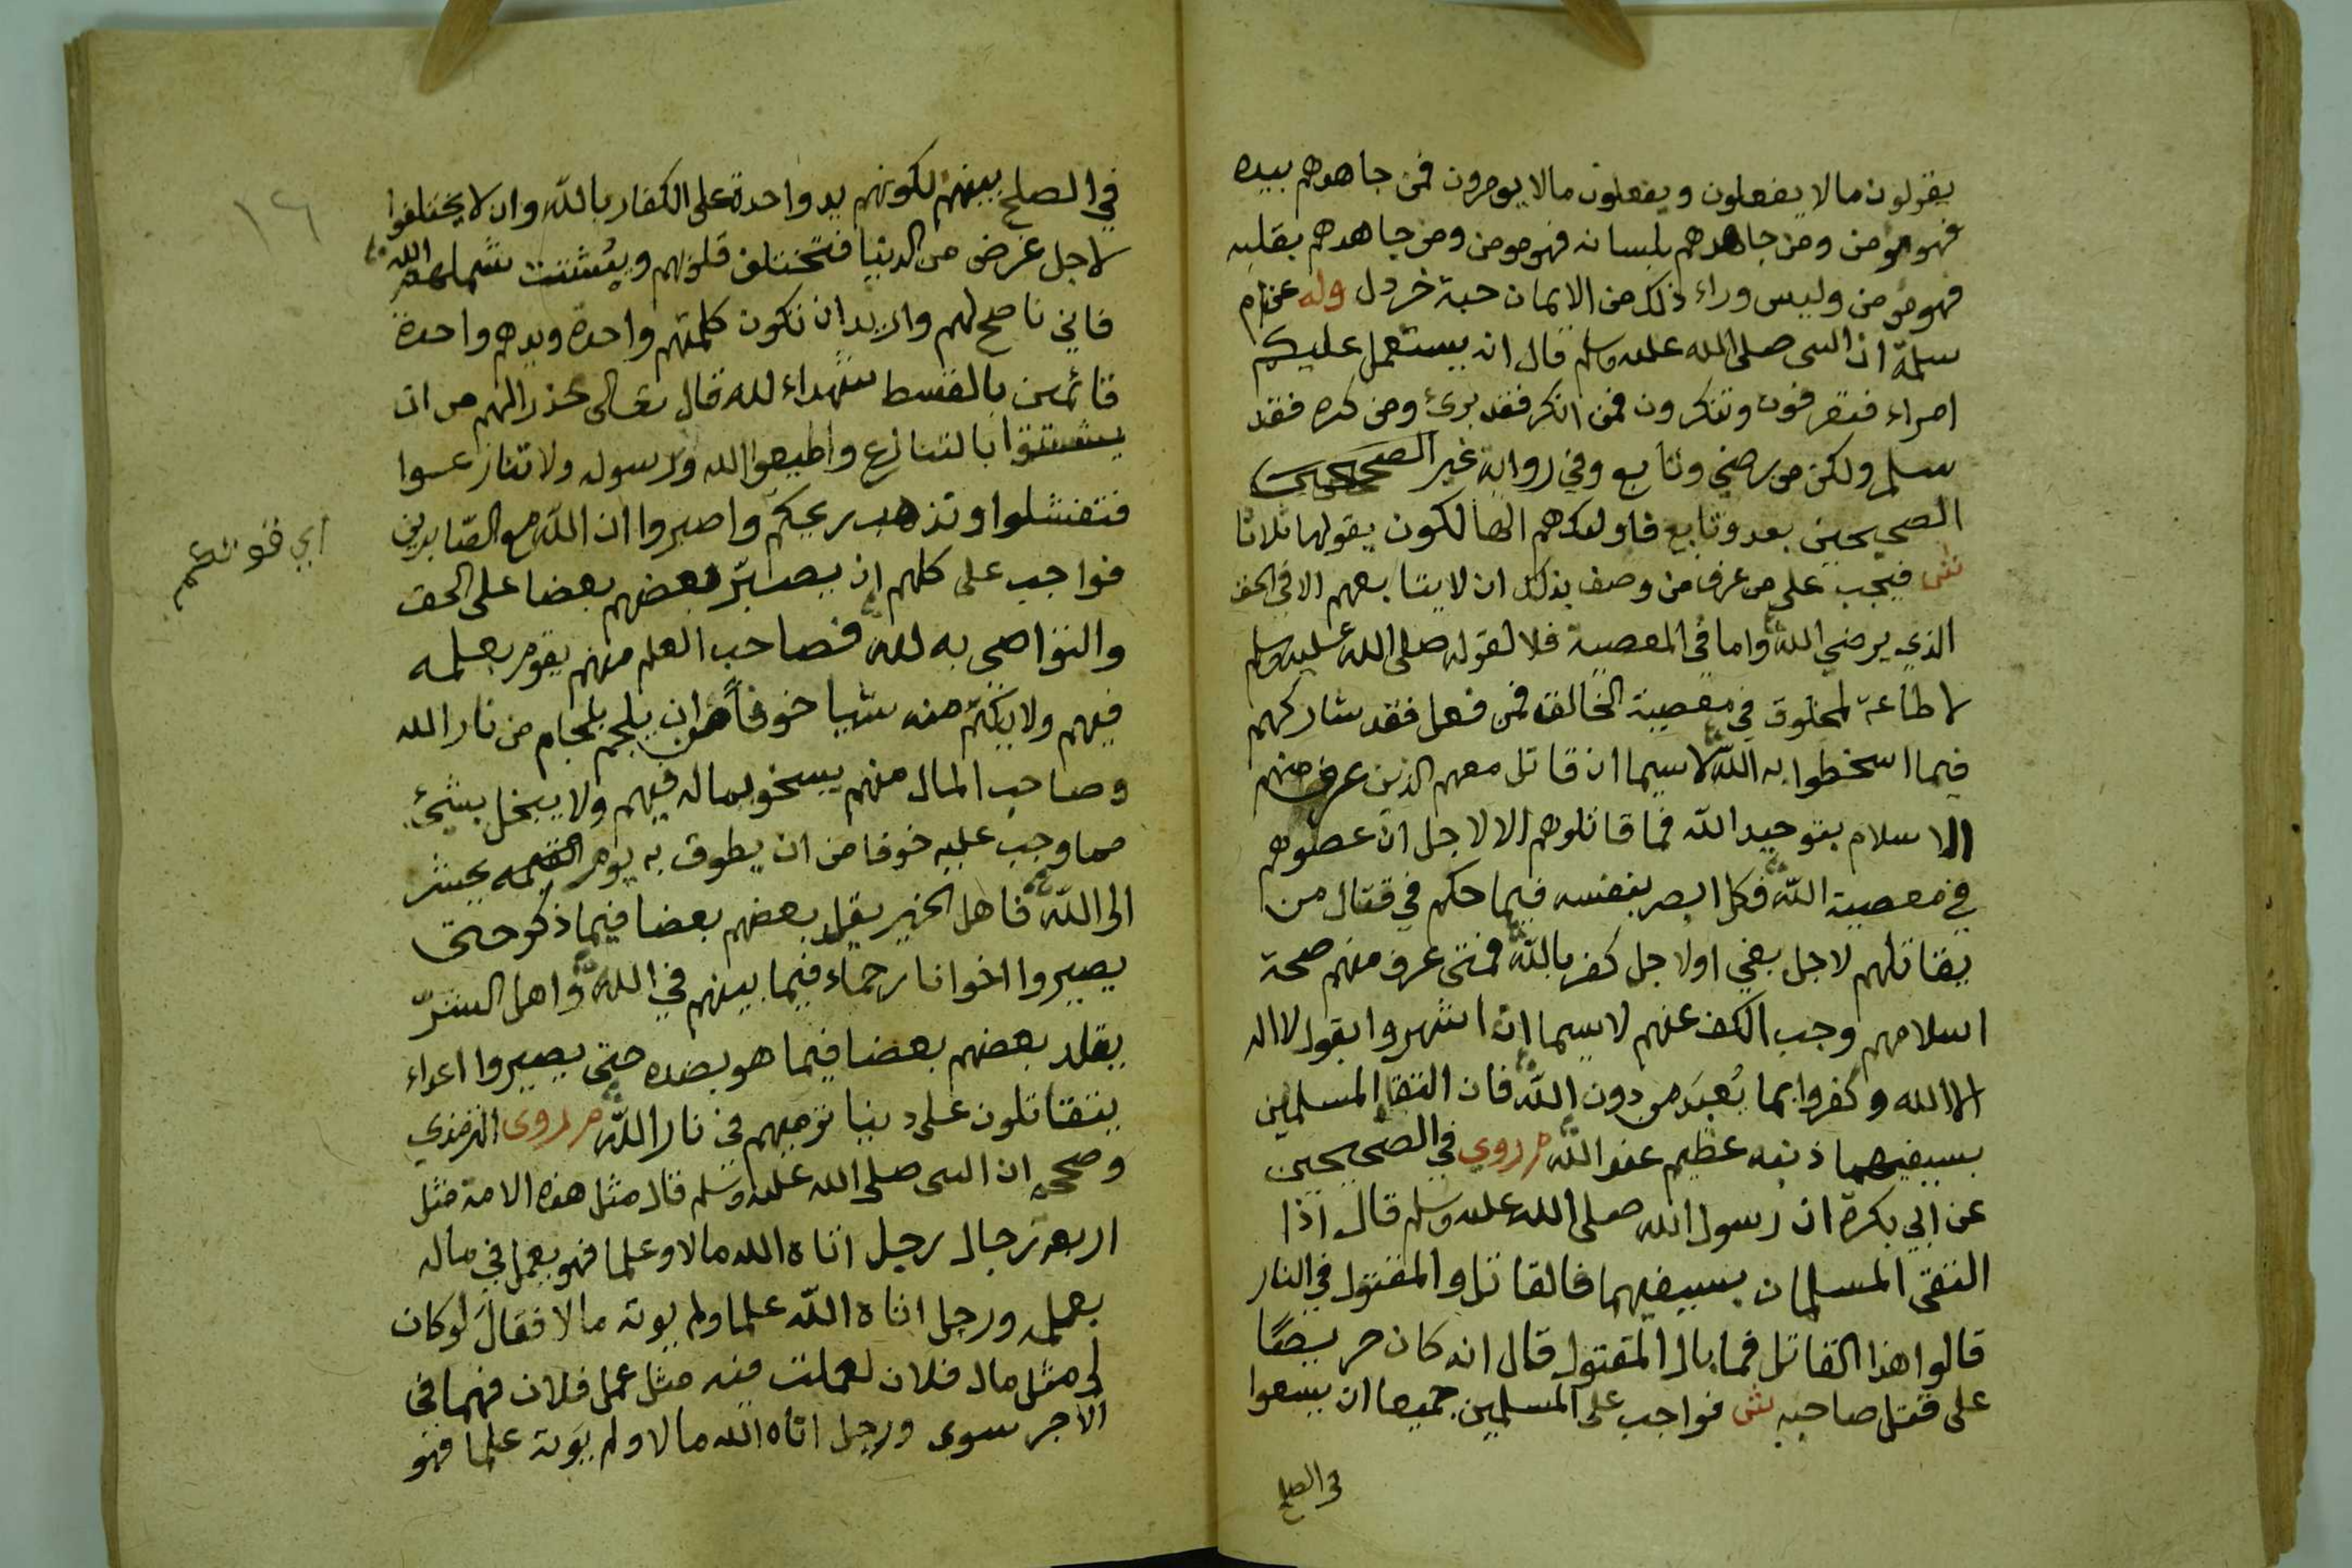 يقولون مالا يفعلون ويفعلون مالا يومرون فمن جاهدهم بيده
فهو مومن ومن جاهدهم بلسانه فهو مومن ومن جاهدهم بقلبه
فهو مومن وليس وراء ذلك من الايمان حبة خردل وله عن ام
سلمة ان النبى صلى الله عليه وسلم قال انه يستعمل عليكم
امراء فتعرفون وتنكرون فمن انكر فقد برئ ومن كره فقد
سلم ولكن من رضي وتابع وفي رواية غير الصحيحين
الصحيحين بعد وتابع فاولئك هم الهالكون يقولها ثلاثا
ش فيجب على من عرف من وصف بذلك ان لا يتابعهم الا في الحق
الذي يرضي الله واما في المعصية فلا لقوله صلى الله عليه وسلم
لا طاعة لمخلوق في معصية الخالق فمن فعل فقد شاركهم
فيما اسخطوا به الله لا سيما ان قاتل معهم الذين عرف منهم
الاسلام بتوحيد الله فما قاتلوهم الا لاجل ان عصوهم
في معصية الله فكل ابصر بنفسه فيما حكم في قتال من
يقاتلهم لاجل بغي او لاجل كفر بالله فمتى عرف منهم صحة
اسلامهم وجب الكف عنهم لاسيما ان اشهروا بقول لا اله
الا الله وكفروا بما يُعبَد من دون الله فان التقا المسلمين
بسيفيهما ذنبه عظيم عند الله م روي في الصحيحين
عن ابي بكرة ان رسول الله صلى الله عليه وسلم قال اذا
التقى المسلمان بسيفيهما فالقاتل والمقتول في النار
قالوا هذا القاتل فما بال المقتول قال انه كان حريصًا
على قتل صاحبه ش فواجب على المسلمين جميعا ان يسعوا
في الصلح
١٦
في الصلح بينهم لكونهم يد واحدة على الكفار بالله وان لا يختلفوا
لاجل غرض من الدنيا فتختلف قلوبهم ويتشتت شملهم الله
فاني ناصح لهم واريد ان تكون كلمتهم واحدة ويدهم واحدة
قائمين بالقسط شهداء لله قال تعالى محذرا لهم من ان
يتشتتوا بالتنازع واطيعوا الله ورسوله ولا تنازعوا
فتفشلوا وتذهب ريحكم واصبروا ان الله مع الصّابرين
اي قوتكم
فواجب على كلهم ان يصبّر بعضهم بعضا على الحق
والتواصي به لله فصاحب العلم منهم يقوم بعلمه
فيهم ولا يكتم منه شيا خوفاً من ان يلجم بلجام من نار الله
وصاحب المال منهم يسخو بماله فيهم ولا يبخل بشيئ
مما وجب عليه خوفا من ان يطوق به يوم القيمه يحشر
الى الله فاهل الخير يقلد بعضهم بعضا فيما ذكر حتى
يصيروا اخوانا رحماء فيما بينهم في الله واهل الشرّ
يقلد بعضهم بعضا فيما هو بضده حتى يصيروا اعداء
يتقاتلون على دنيا ترميهم في نار الله م روى الترمذي
وصححه ان النبى صلى الله عليه وسلم قال مثل هذه الامة مثل
اربعة رجال رجل اتاه الله مالا وعلما فهو يعمل في ماله
بعلمه ورجل اتاه الله علما ولم يوته مالا فقال لو كان
لي مثل مال فلان لعملت فيه مثل عمل فلان فهما في
الاجر سوى ورجل اتاه الله مالا ولم يوته علما فهو